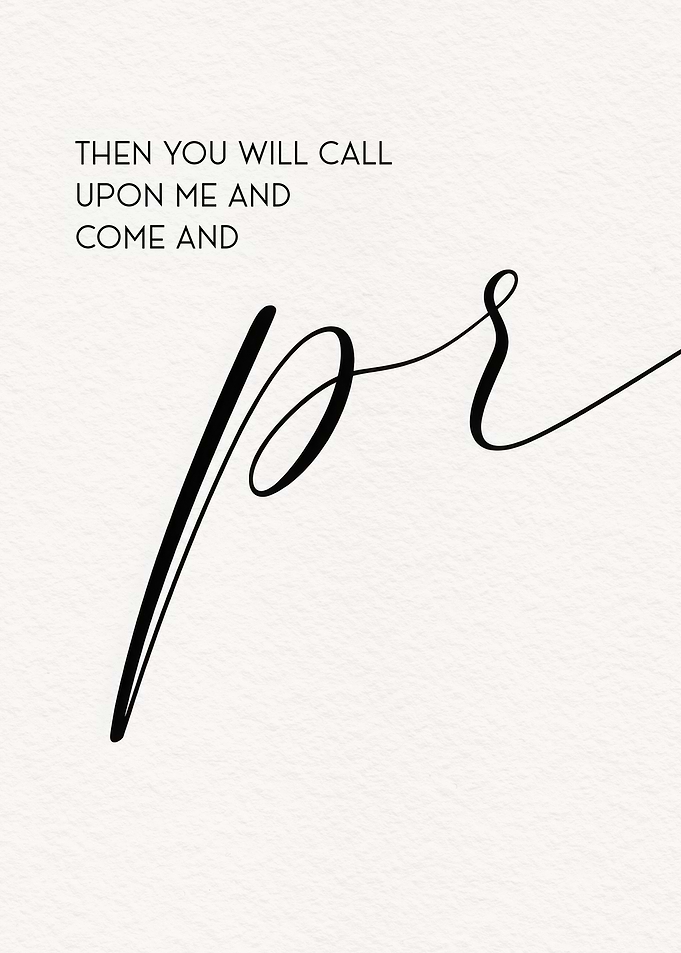 THEN YOU WILL CALL
UPON ME AND
COME AND
pr